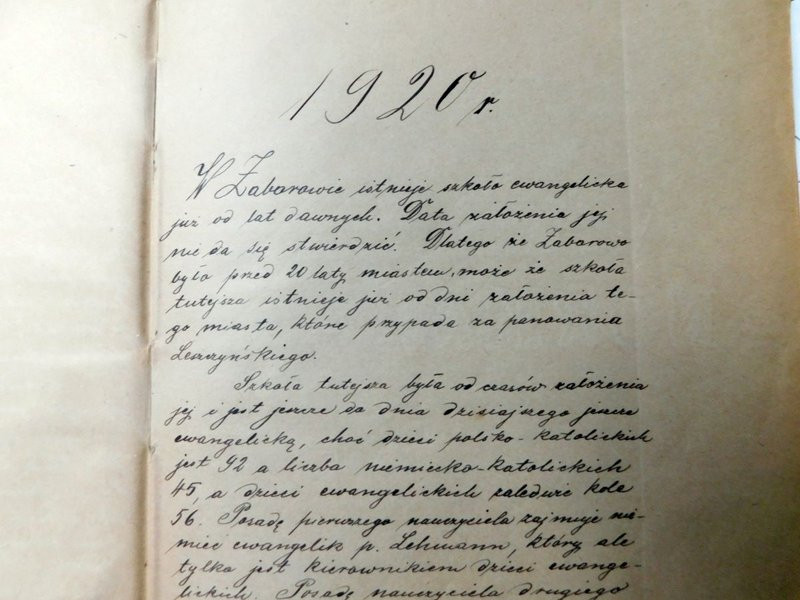 1920 r.
W Zaborowie istnieje szkoła ewangelicka
już od lat dawnych. Data założenia jej
nie da się stwierdzić. Dlatego że Zaborowo
było przed 20 laty miastem, może że szkoła
tutejsza istnieje już od dni założenia te-
go miasta, które przypada za panowania
Leszczyńskiego.
Szkoła tutejsza była od czasów założenia
jej i jest jeszcze do dnia dzisiajzego jeszcze
ewangelicką, choć dzieci polsko-katolickich
jest 92 a liczba niemiecko-katolickich
45, a dzieci ewangelickich zaledwie koło
56. Posadę pierwszego nauczyciela zajmuje nie-
miec ewangelik p. Lehmann, który ale
tylko jest kierownikiem dzieci ewange-
lickich. Posadę nauczyciela drugiego